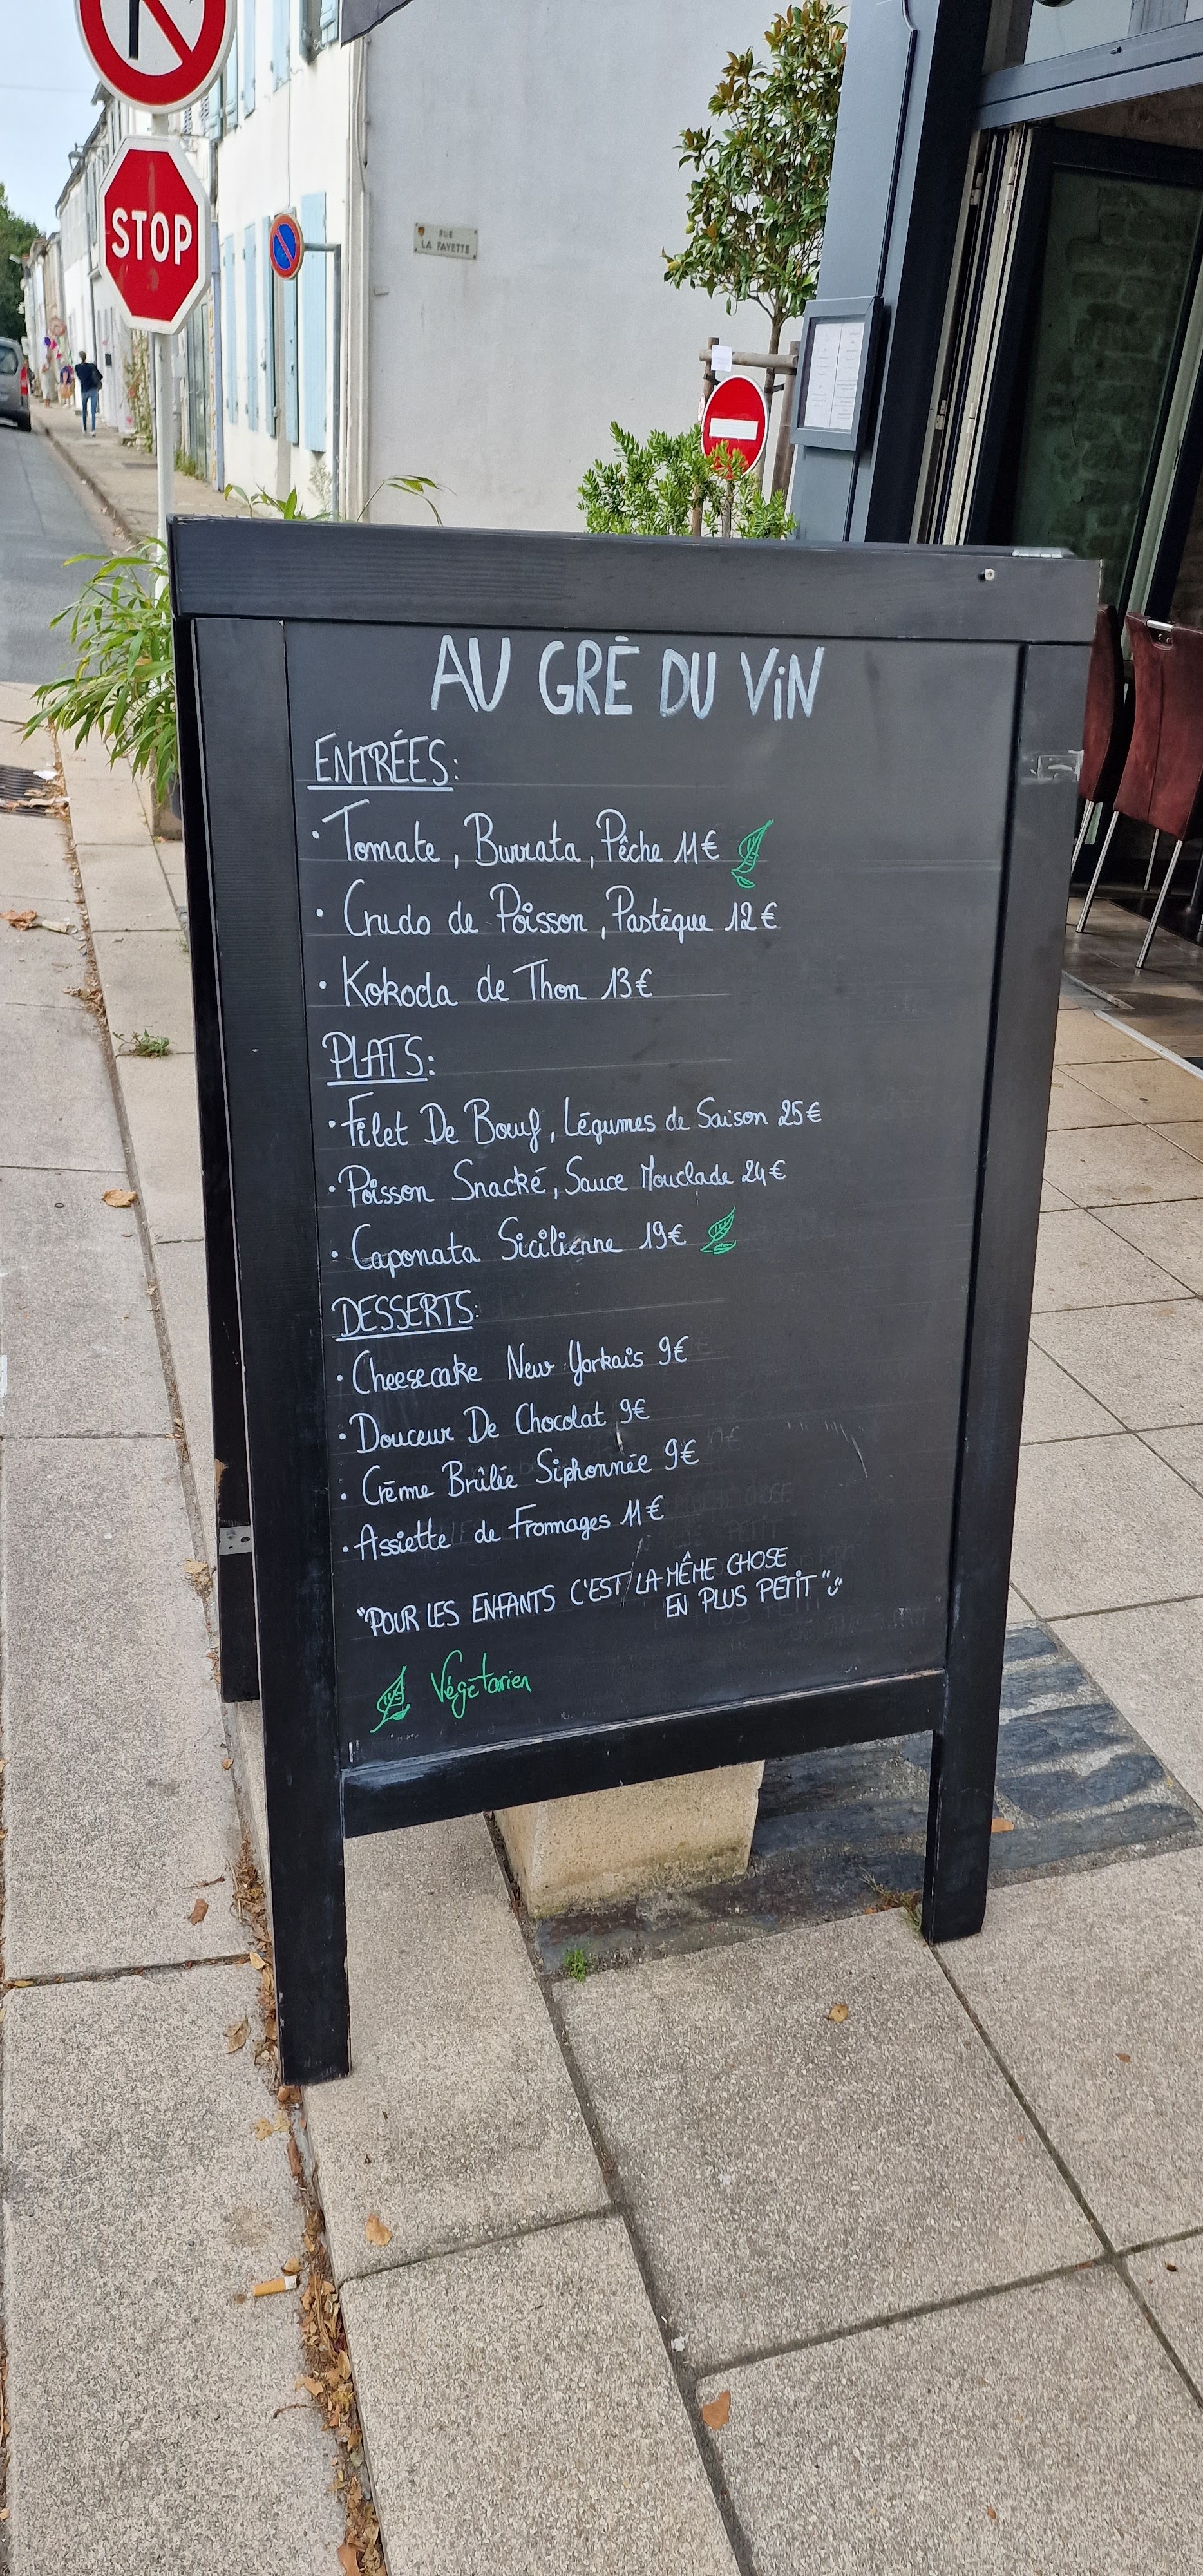 STOP
RUE
LA FAYETTE
AU GRÉ DU ViN
ENTRÉES:
· Tomate, Burrata, Pêche 11€
· Crudo de Poisson, Pastèque 12€
· Kokoda de Thon 13€
PLATS:
· Filet De Bœuf, Légumes de Saison 25€
· Poisson Snacké, Sauce Mouclade 24€
· Caponata Sicilienne 19€
DESSERTS:
· Cheesecake New Yorkais 9€
· Douceur De Chocolat 9€
· Crème Brûlée Siphonnée 9€
· Assiette de Fromages 11€
"POUR LES ENFANTS C'EST LA MÊME CHOSE
EN PLUS PETiT"
Végétarien